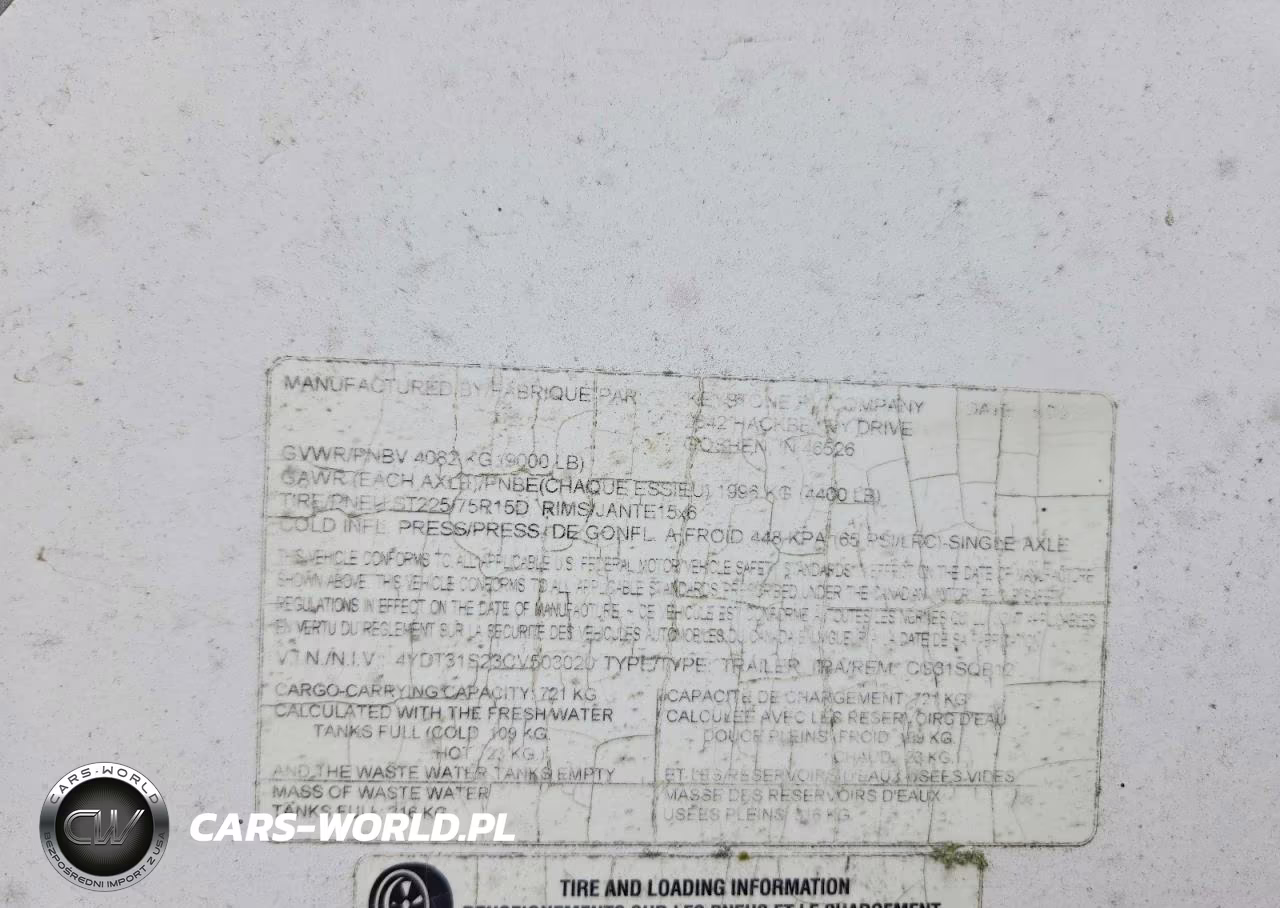 MANUFACTURED BY/FABRIQUE PAR KEYSTONE RV COMPANY DATE
2642 HACKBERRY DRIVE
GOSHEN, IN 46526
GVWR/PNBV 4082 KG (9000 LB)
GAWR (EACH AXLE)/PNBE(CHAQUE ESSIEU) 1996 KG (4400 LB)
TIRE/PNEU ST225/75R15D RIMS/JANTE15x6
COLD INFL. PRESS/PRESS. DE GONFL. A FROID 448 KPA (65 PSI/LPC)-SINGLE AXLE
THIS VEHICLE CONFORMS TO ALL APPLICABLE U.S. FEDERAL MOTOR VEHICLE SAFETY STANDARDS IN EFFECT ON THE DATE OF MANUFACTURE
SHOWN ABOVE. THIS VEHICLE CONFORMS TO ALL APPLICABLE STANDARDS PRESCRIBED UNDER THE CANADIAN MOTOR VEHICLE SAFETY
REGULATIONS IN EFFECT ON THE DATE OF MANUFACTURE. - CE VEHICULE EST CONFORME A TOUTES LES NORMES QUI LUI SONT APPLICABLES
EN VERTU DU REGLEMENT SUR LA SECURITE DES VEHICULES AUTOMOBILES DU CANADA EN VIGUEUR A LA DATE DE SA FABRICATION
V.I.N./N.I.V.: 4YDT31S23CV503020 TYPE/TYPE: TRAILER (TRA/REM)
CARGO-CARRYING CAPACITY: 721 KG
CALCULATED WITH THE FRESH WATER
TANKS FULL (COLD 109 KG
HOT (23 KG.)
AND THE WASTE WATER TANKS EMPTY
MASS OF WASTE WATER
TANKS FULL: 316 KG
CAPACITE DE CHARGEMENT: 721 KG
CALCULEE AVEC LES RESERVOIRS D'EAU
DOUCE PLEINS (FROID 109 KG
CHAUD 23 KG.)
ET LES RESERVOIRS D'EAUX USEES VIDES
MASSE DES RESERVOIRS D'EAUX
USEES PLEINS: 316 KG
TIRE AND LOADING INFORMATION
RENSEIGNEMENTS SUR LES PNEUS ET LE CHARGEMENT
CARS-WORLD
CW
BEZPOŚREDNI IMPORT Z USA
CARS-WORLD.PL